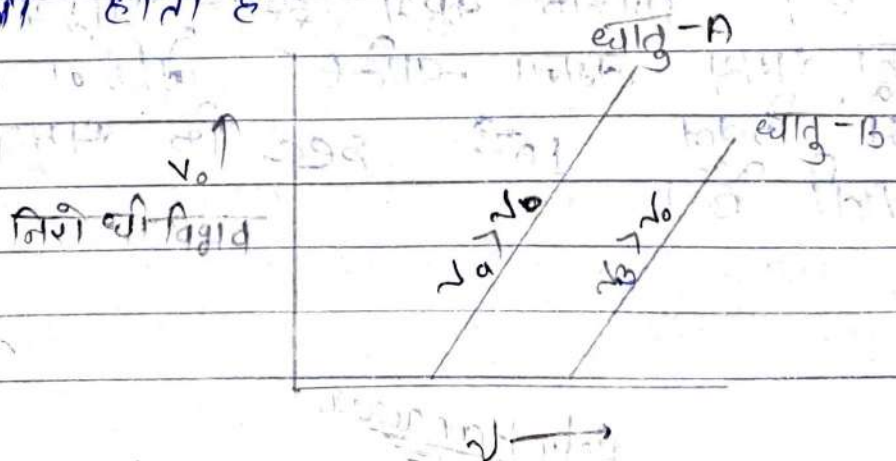 होता है
धातु-A
धातु-B
V₀ ↑
निरोधी विभव
ν →